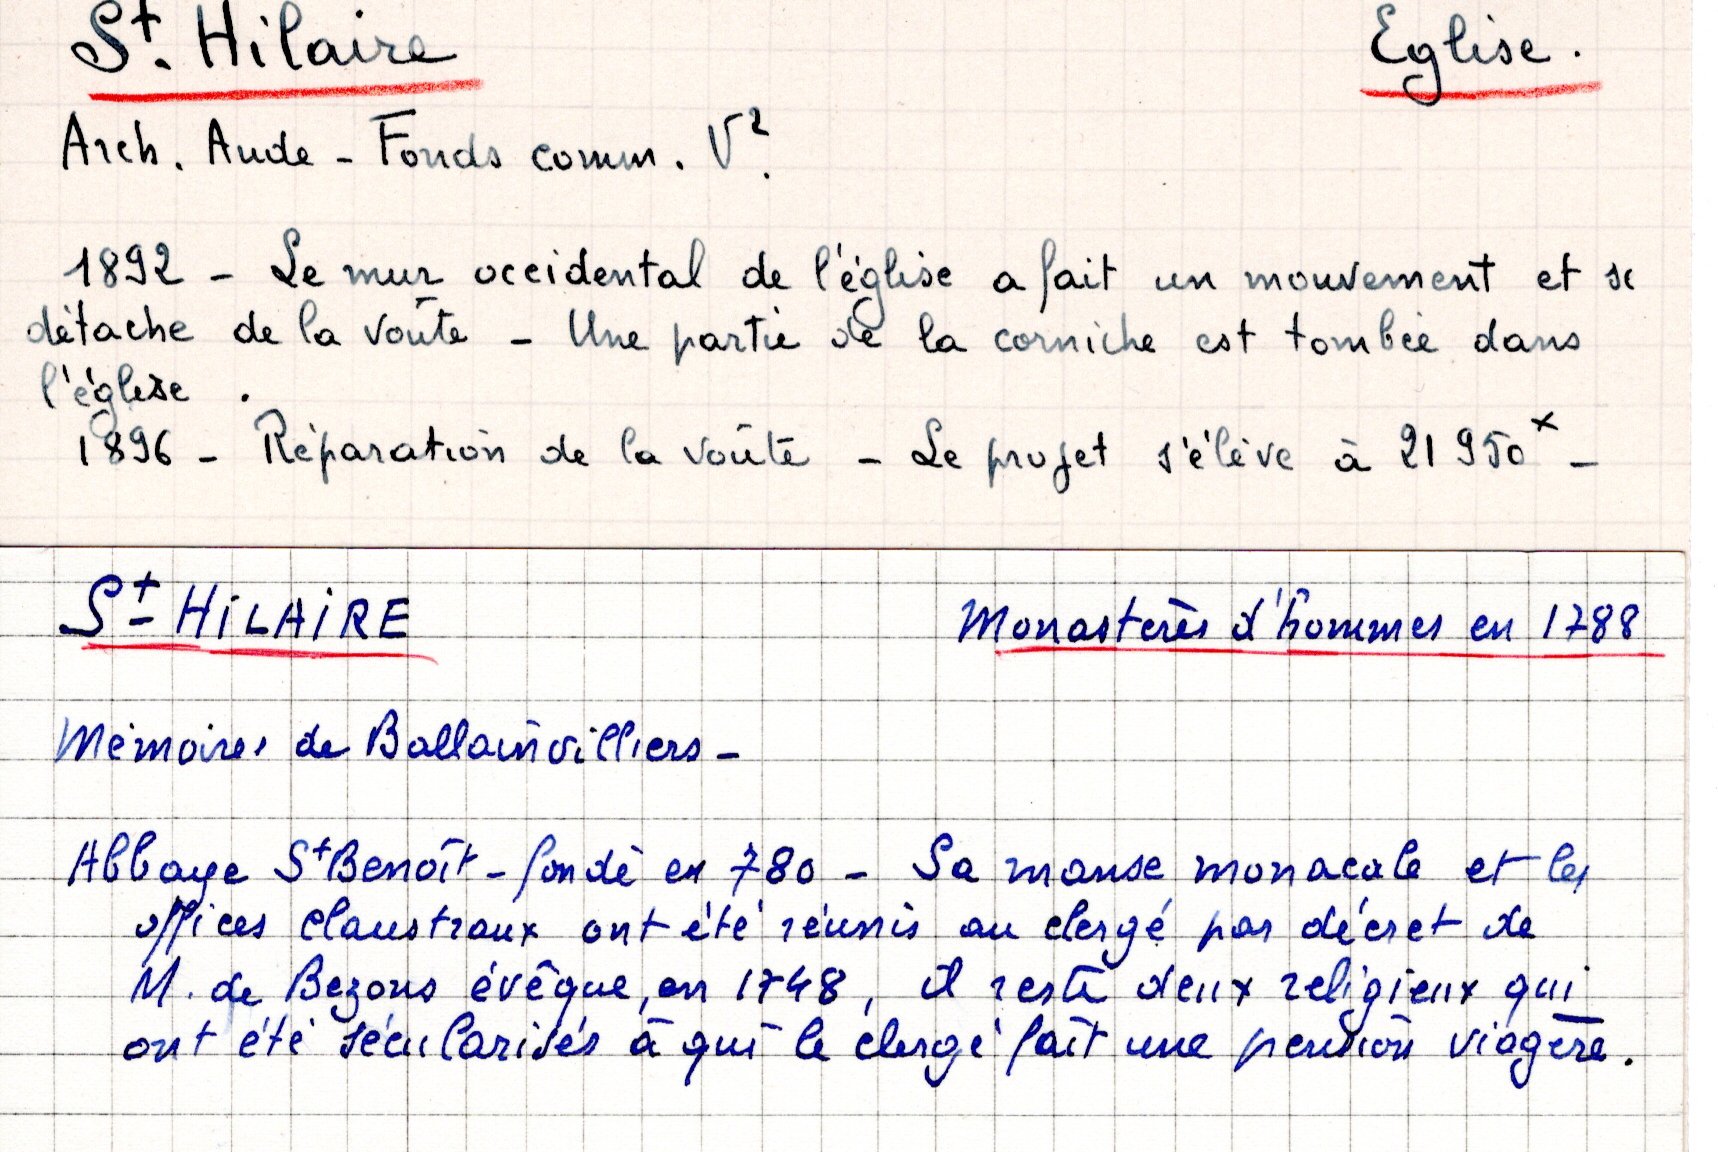 St. Hilaire Eglise.
Arch. Aude - Fonds comm. V².
1892 - Le mur occidental de l'église a fait un mouvement et se
détache de la voûte - Une partie de la corniche est tombée dans
l'église.
1896 - Réparation de la voûte - Le projet s'élève à 21950ˣ -
St HILAIRE Monastères d'hommes en 1788
Mémoires de Ballainvilliers -
Abbaye St Benoît - fondé en 780 - Sa manse monacale et les
offices claustraux ont été réunis au clergé par décret de
M. de Bezons évêque, en 1748, il reste deux religieux qui
ont été sécularisés à qui le clergé fait une pension viagère.